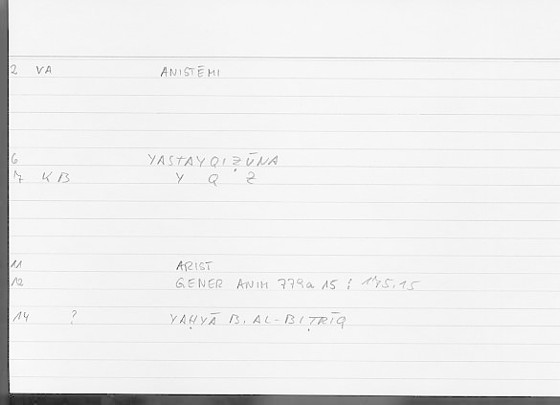 2 VA ANISTĒMI
6 YASTAYQIẒŪNA
7 KB Y Q Ẓ
11 ARIST
12 GENER ANIM 779a 15 ; 175.15
14 ? YAḤYĀ B. AL-BIṬRĪQ